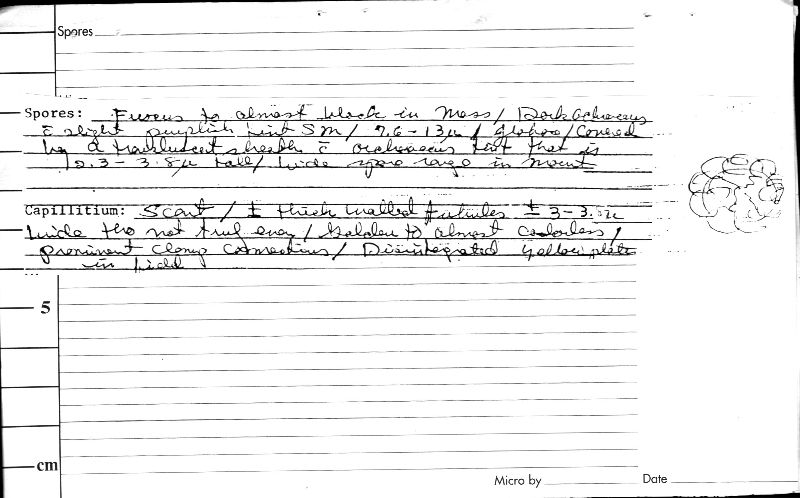 Spores
Spores: Fuscus to almost black in mass/ Dark ochraceus
c̄ slight purplish tint SM/ 7.6-13µ/ globose/ Covered
by a translucent sheath c̄ ochraceus tint that is
2.3-3.8µ tall/ wide spore range in mount
Capillitium: Scant/ ± thick walled ± 3-3.
wide tho not truly even/ Golden to almost colorless/
prominent clamp connections/ Disintegrated yellow plate
in
5
cm
Micro by
Date